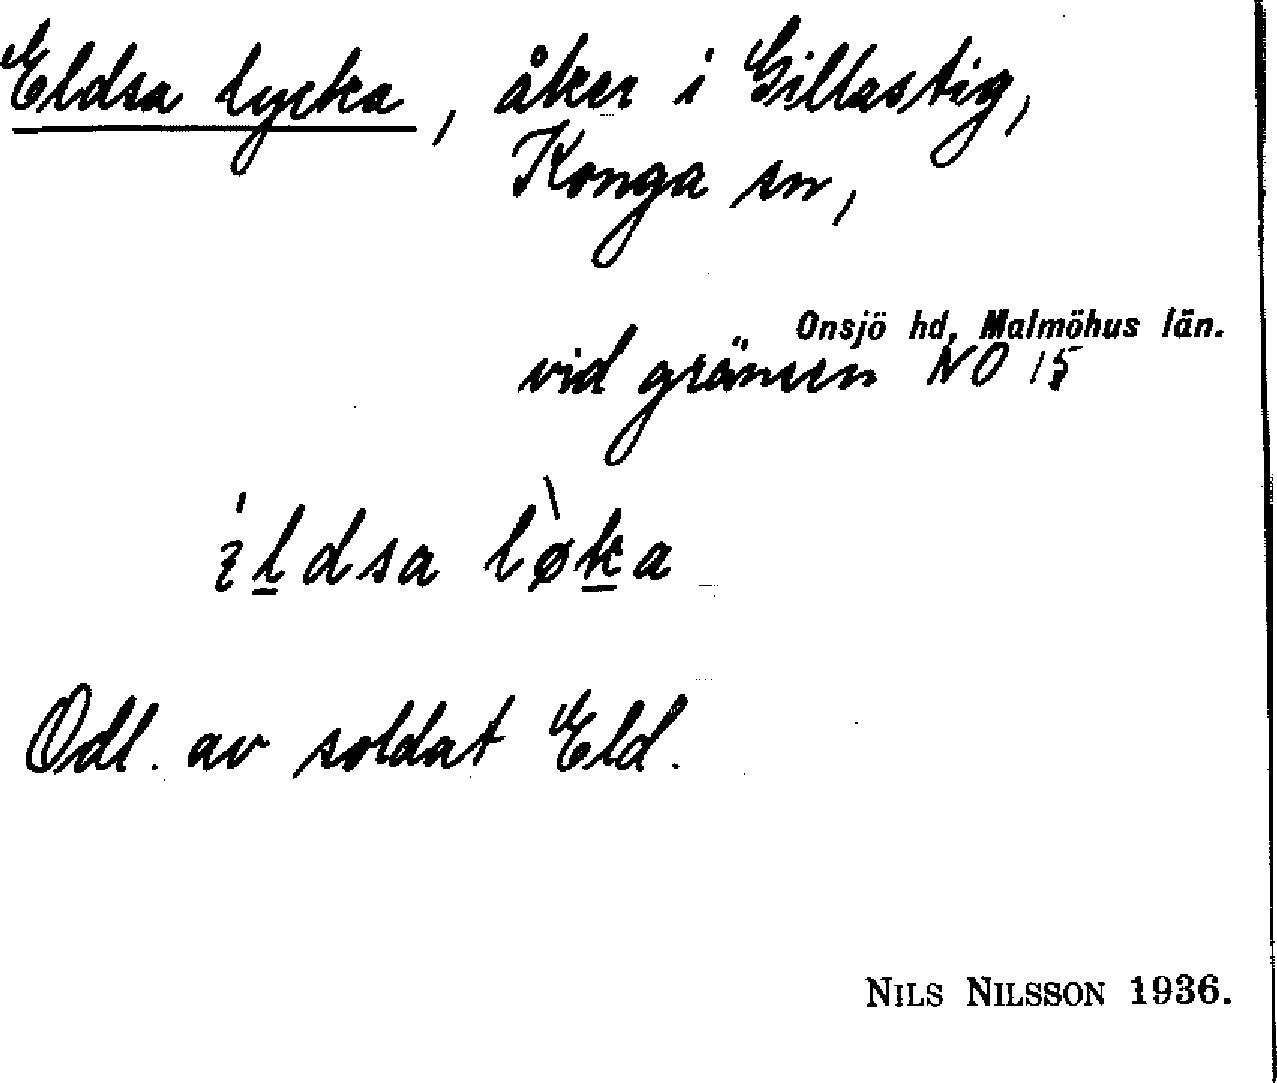 Eldsa lycka, åker i Gillastig,
Konga sn,
Onsjö hd, Malmöhus län.
vid gränsen NO 15
ɛldsa løka
Odl. av soldat Eld.
NILS NILSSON 1936.